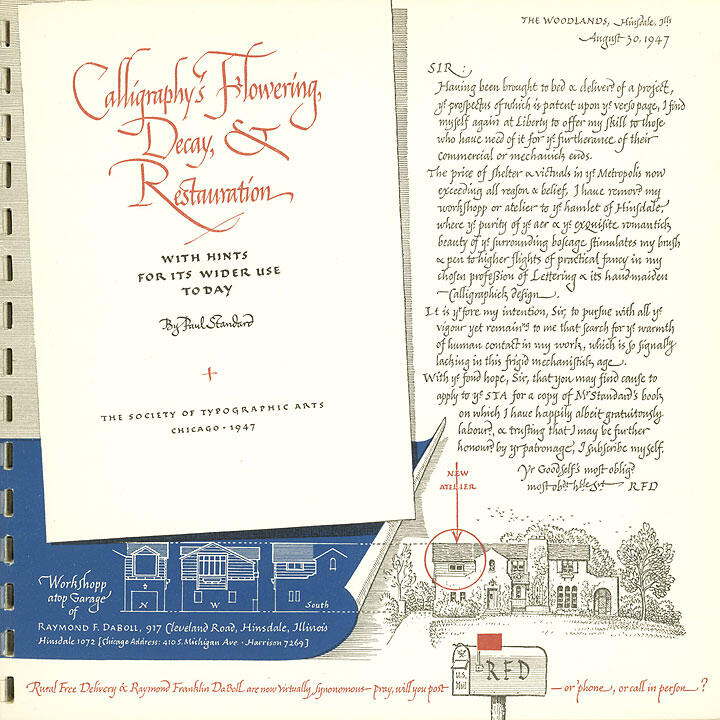 Calligraphy's Flowering,
Decay, &
Restauration
WITH HINTS
FOR ITS WIDER USE
TODAY
By Paul Standard
THE SOCIETY OF TYPOGRAPHIC ARTS
CHICAGO · 1947
THE WOODLANDS, Hinsdale, Ills
August 30, 1947
SIR:
Having been brought to bed & deliver'd of a project,
ye prospectus of which is patent upon ye verso page, I find
myself again at Liberty to offer my skill to those
who have need of it for ye furtherance of their
commercial or mechanick ends.
The price of shelter & victuals in ye Metropolis now
exceeding all reason & belief, I have remov'd my
workshopp or atelier to ye hamlet of Hinsdale,
where ye purity of ye aer & ye exquisite romantick
beauty of ye surrounding boscage stimulates my brush
& pen to higher flights of practical fancy in my
chosen profession of Lettering & its handmaiden
—Calligraphick design.
It is y'fore my intention, Sir, to pursue with all ye
vigour yet remain'g to me that search for ye warmth
of human contact in my work, which is so signally
lacking in this frigid mechanistick age.
With ye fond hope, Sir, that you may find cause to
apply to ye STA for a copy of Mr Standard's book
on which I have happily albeit gratuitously
labour'd, & trusting that I may be further
honour'd by ye patronage, I subscribe myself,
Yr Goodself's most oblig'd
most obt hble Svt — RFD
NEW
ATELIER
Workshopp
atop Garage
of
N
W
South
RAYMOND F. DABOLL, 917 Cleveland Road, Hinsdale, Illinois
Hinsdale 1072 [Chicago Address: 410 S. Michigan Ave. · Harrison 7269]
U.S.
Mail
RFD
Rural Free Delivery & Raymond Franklin DaBoll are now virtually synonomous — pray, will you post — or 'phone, or call in person?